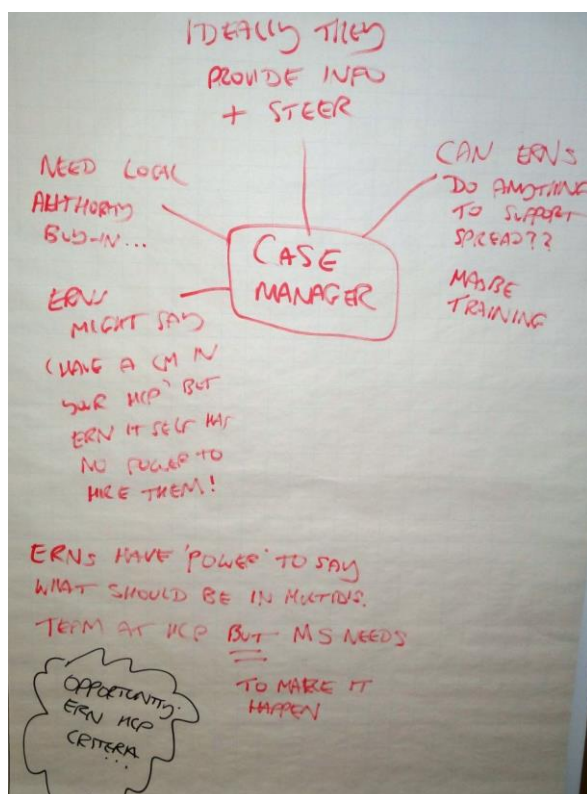 IDEALLY THEY
PROVIDE INFO
+ STEER
NEED LOCAL
AUTHORITY
BUY-IN...
CAN ERNS
DO ANYTHING
TO SUPPORT
SPREAD??
MAYBE
TRAINING
CASE
MANAGER
ERNS
MIGHT SAY
'HAVE A CM IN
YOUR HCP' BUT
ERN ITSELF HAS
NO POWER TO
HIRE THEM!
ERNS HAVE 'POWER' TO SAY
WHAT SHOULD BE IN MULTIDIS.
TEAM AT HCP BUT MS NEEDS
TO MAKE IT
HAPPEN
OPPORTUNITY:
ERN HCP
CRITERIA
...